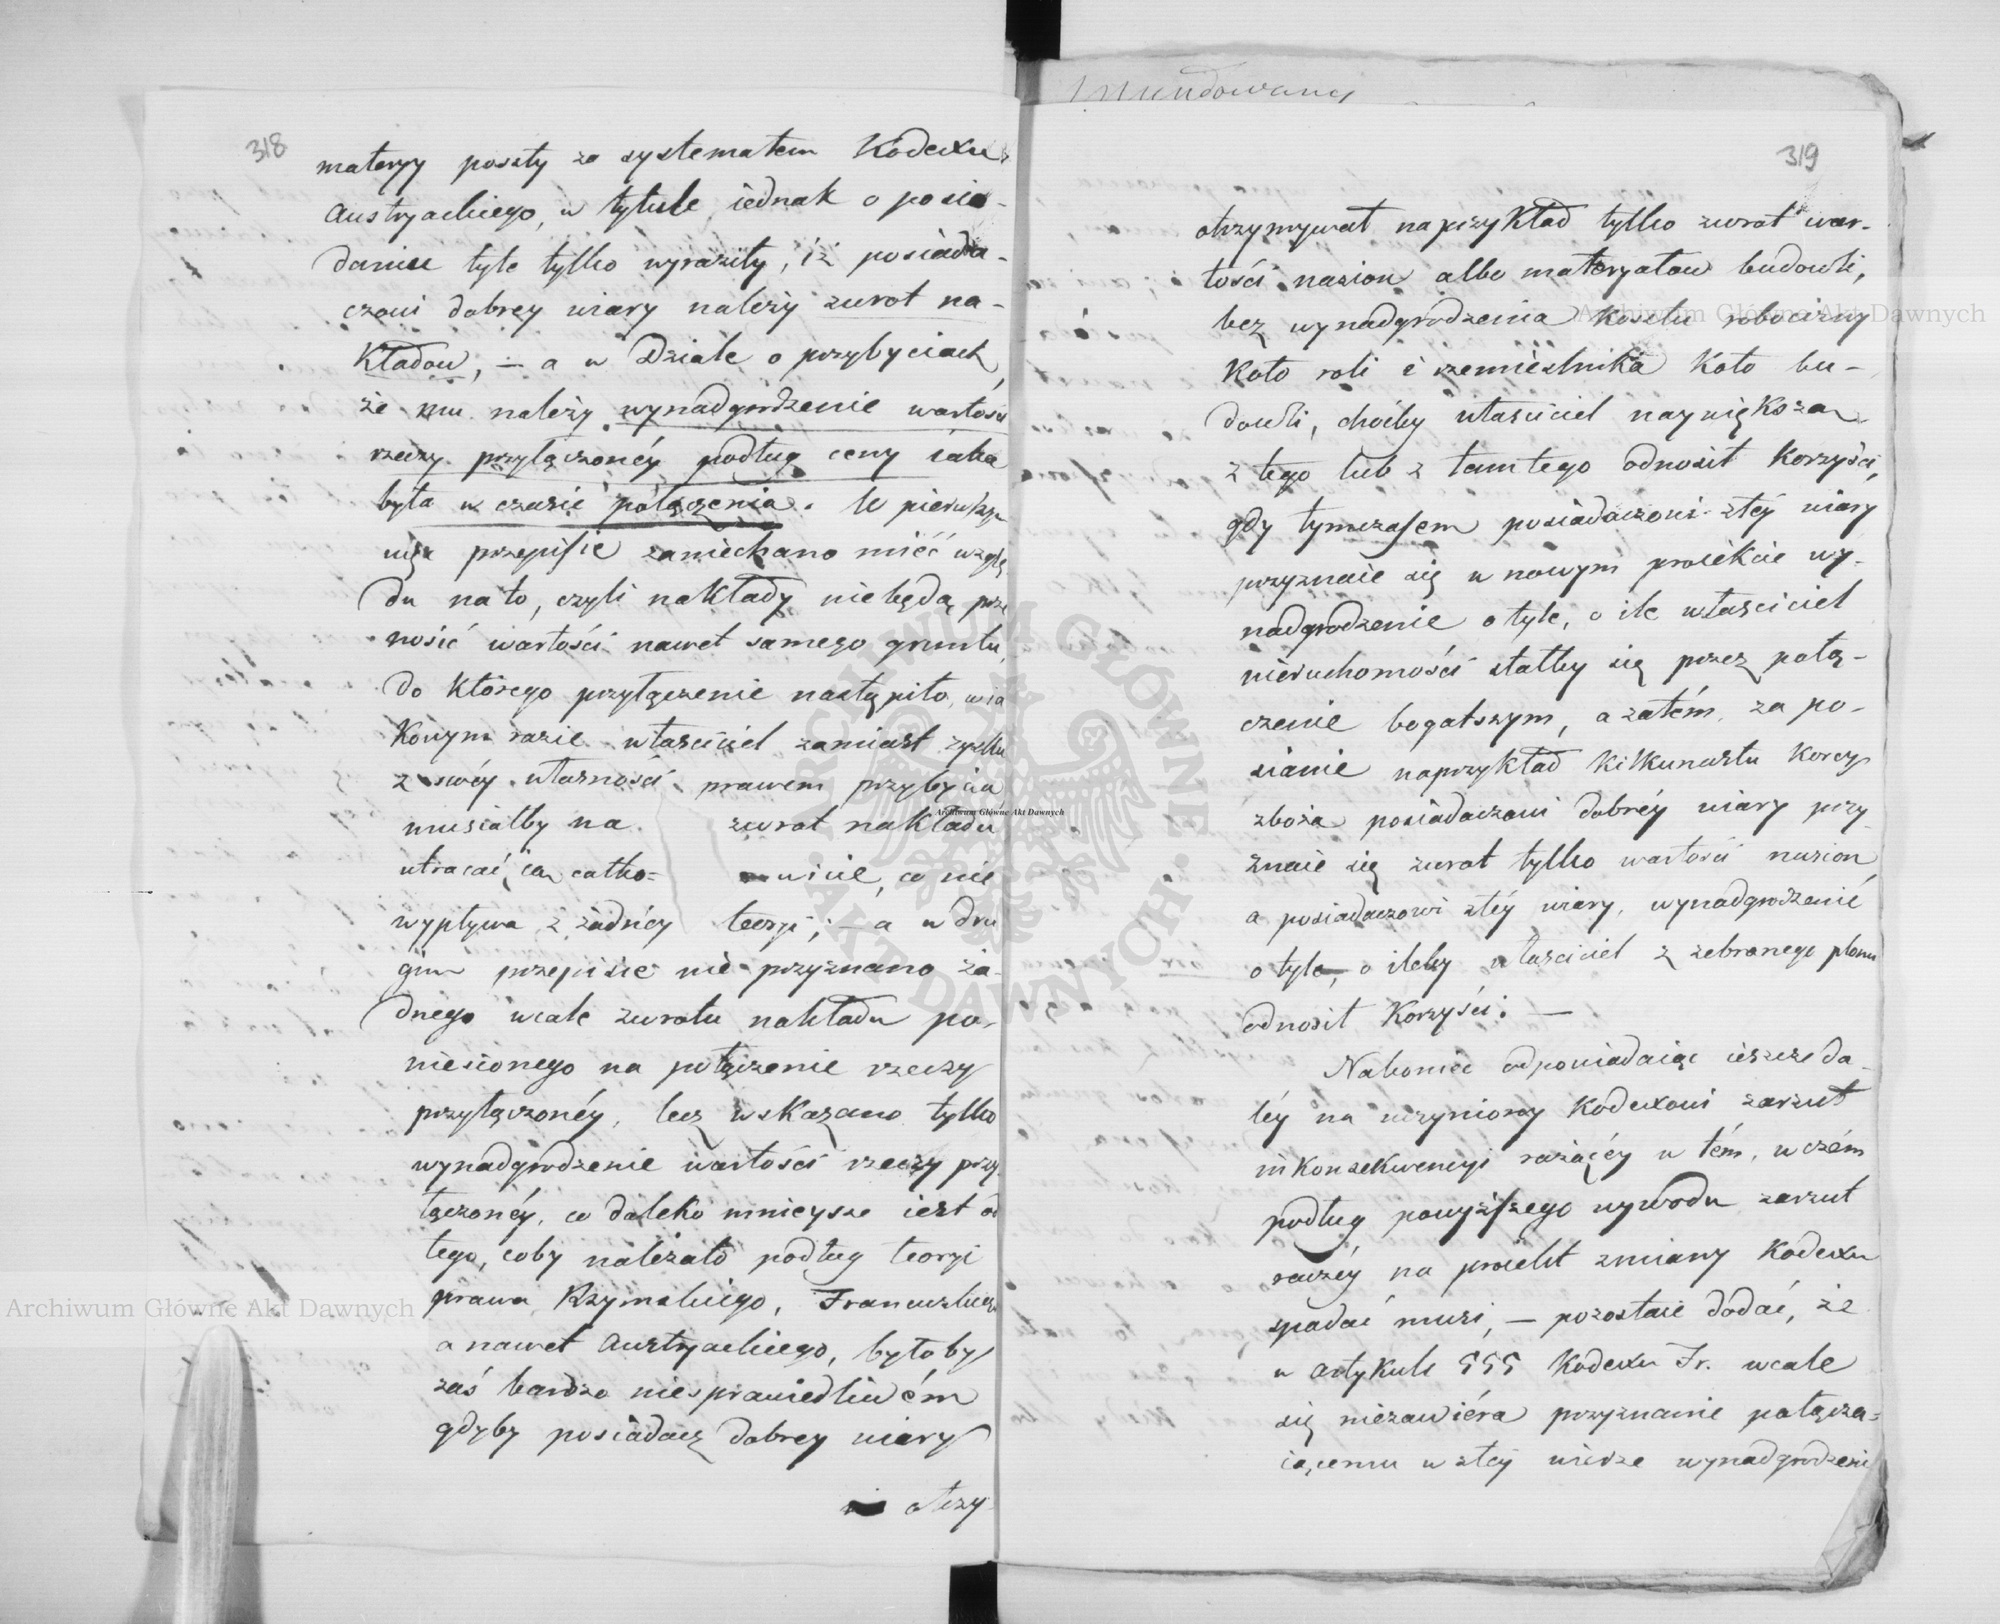 318
materyy poszły za systematem Kodexu
Austryackiego, w tytule iednak o posia-
daniu tyle tylko wyraziły, iż posiada-
czowi dobrey wiary należy zwrot na-
kładow, — a w Dziale o przybyciach,
że mu należy wynadgrodzenie wartości
rzeczy przyłączonéy podług ceny iaka
była w czasie połączenia. W pierwszym
przepisie zaniechano miéć wzglę
du na to, czyli nakłady nie będą prze
nosić wartości nawet samego gruntu,
do którego przyłączenie nastąpiło, w ia
kowym razie właściciel zamiast zysku
z swéy własności prawem przybycia
musiałby na zwrot nakładu
utracać ią całko= wicie, co nie
wypływa z żadnéy teoryi; — a w dru
gim przepisie nie przyznano ża-
dnego wcale zwrotu nakładu po-
niesionego na połączenie rzeczy
przyłączonéy, lecz wskazano tylko
wynadgrodzenie wartości rzeczy przy
łączonéy, co daleko mnieysze iest od
tego, coby należało podług teoryi
prawa Rzymskiego, Francuzkiego
a nawet Austryackiego, byłoby
zaś bardzo niesprawiedliwém
gdyby posiadacz dobrey wiary
otrzy
Mundowany
319
otrzymywał naprzykład tylko zwrot war-
tości nasion albo materyałow budowli,
bez wynadgrodzenia kosztu robocizny
koło roli i rzemieślnika koło bu-
dowli, choćby właściciel naywiększą
z tego lub z tamtego odnosił korzyść,
gdy tymczasem posiadaczowi złéy wiary
przyznaie się w nowym proiekcie wy-
nadgrodzenie o tyle, o ile właściciel
nieruchomości stałby się przez połą-
czenie bogatszym, a zatém za po-
sianie naprzykład kilkunastu korcy
zboża posiadaczowi dobréy wiary przy
znaie się zwrot tylko wartości nasion,
a posiadaczowi złéy wiary, wynadgrodzenie
o tyle, o ileby właściciel z zebranego plonu
odnosił korzyści. —
Nakoniec odpowiadaiąc ieszcze da-
léy na uczyniony Kodexowi zarzut
inkonsekwencyi rażącéy w tém, w czém
podług powyższego wywodu zarzut
raczéy na proiekt zmiany Kodexu
spadać musi, — pozostaie dodać, że
w artykule 555 Kodexu Fr. wcale
się niezawiéra przyznanie połącza-
iącemu w złéy wierze wynadgrodzenia
Archiwum Główne Akt Dawnych
Archiwum Główne Akt Dawnych
Archiwum Główne Akt Dawnych
ARCHIWUM GŁÓWNE
AKT DAWNYCH